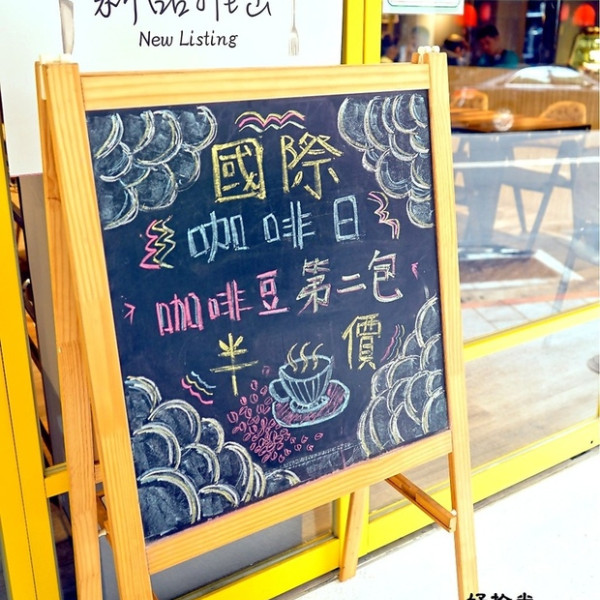 新品推薦
New Listing
國際
咖啡日
咖啡豆第二包
半價